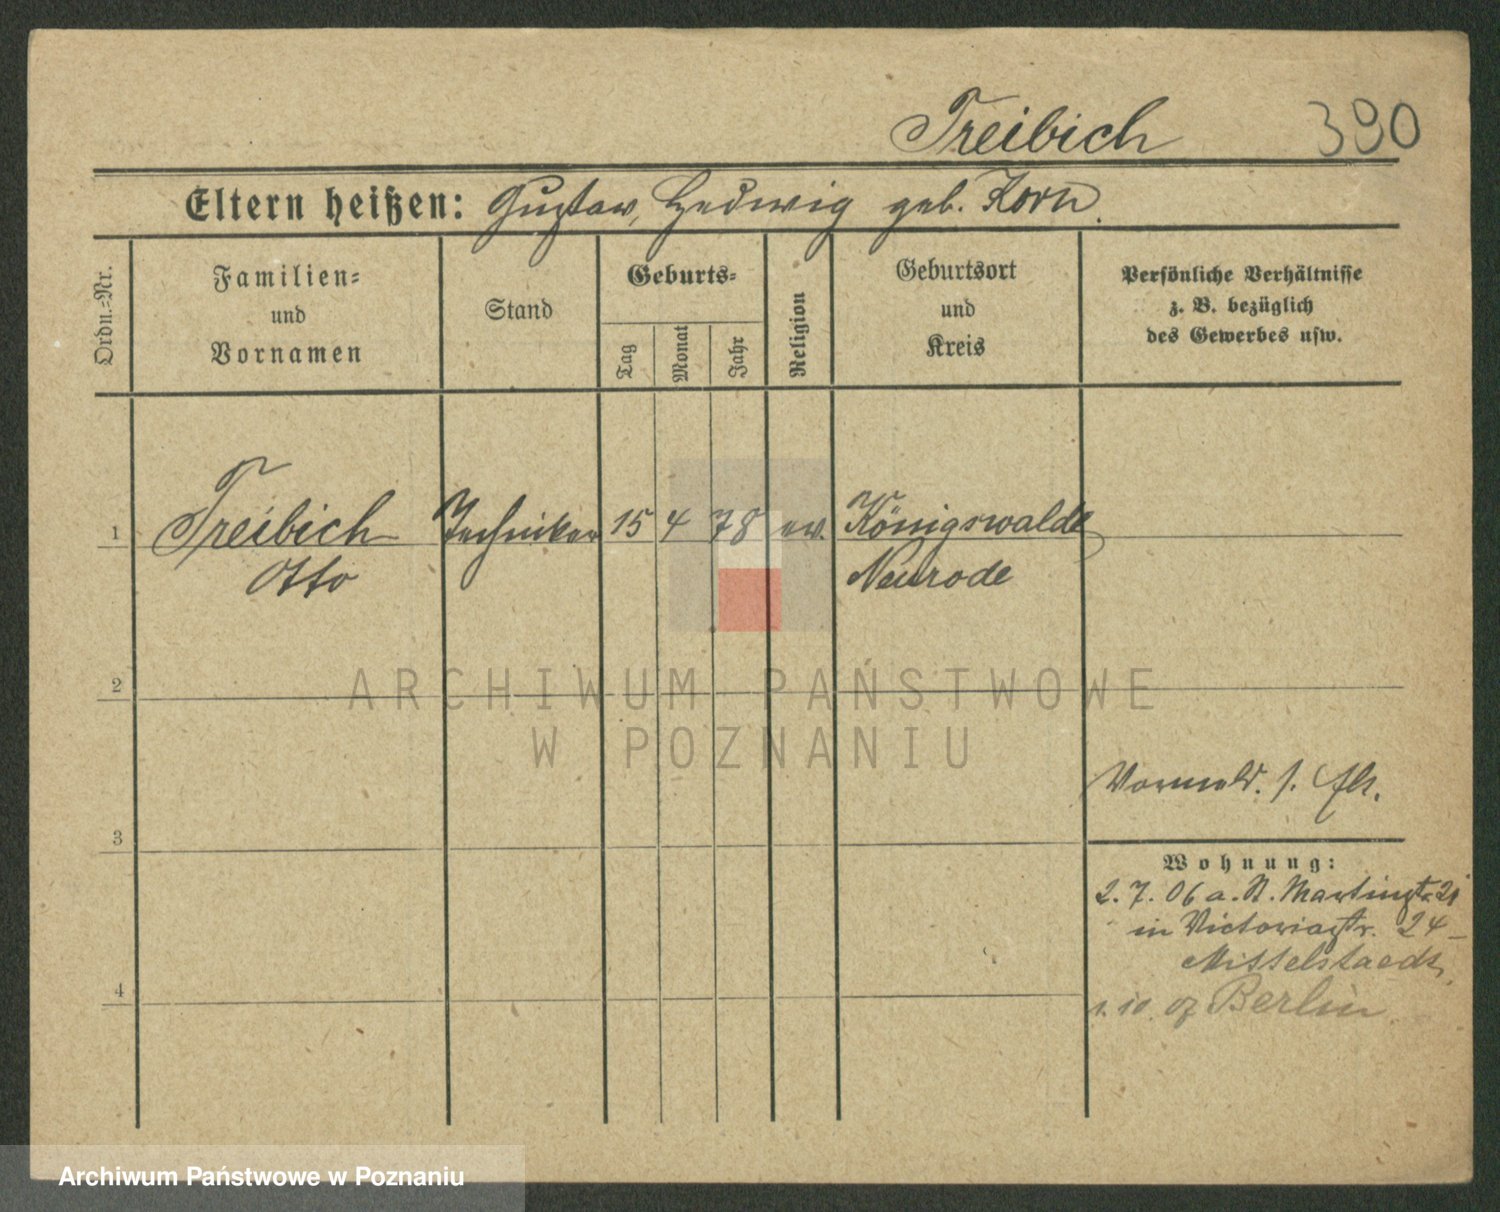 Treibich 390
Eltern heißen: Gustav, Hedwig geb. Korn.
Ordn.=Nr.
Familien=
und
Vornamen
Stand
Geburts=
Tag
Monat
Jahr
Religion
Geburtsort
und
Kreis
Persönliche Verhältnisse
z. B. bezüglich
des Gewerbes usw.
1 Treibich Techniker 15 4 78 ev. Königswalde
Otto Neurode
2
3
4
Wohnung:
2. 7. 06 a. St. Martinstr. 21
in Victoriastr. 24
Mittelstaedt,
1. 10. 07 Berlin
ARCHIWUM PAŃSTWOWE
W POZNANIU
Archiwum Państwowe w Poznaniu